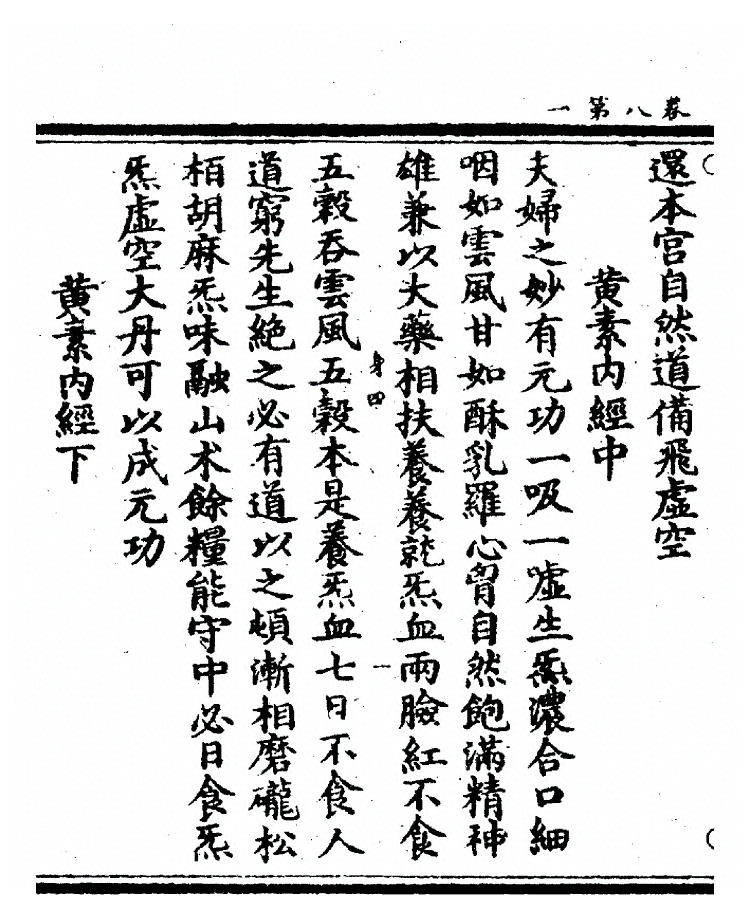 卷八第一
還本宮自然道備飛虛空
黄素内經中
夫婦之妙有元功一吸一噓生炁濃合口細
咽如雲風甘如酥乳羅心胷自然飽滿精神
雄兼以大藥相扶養養就炁血兩臉紅不食
身四
一
五穀吞雲風五穀本是養炁血七日不食人
道窮先生絶之必有道以之頓漸相磨礲松
栢胡麻炁味融山术餘糧能守中必日食炁
炁虛空大丹可以成元功
黄素内經下